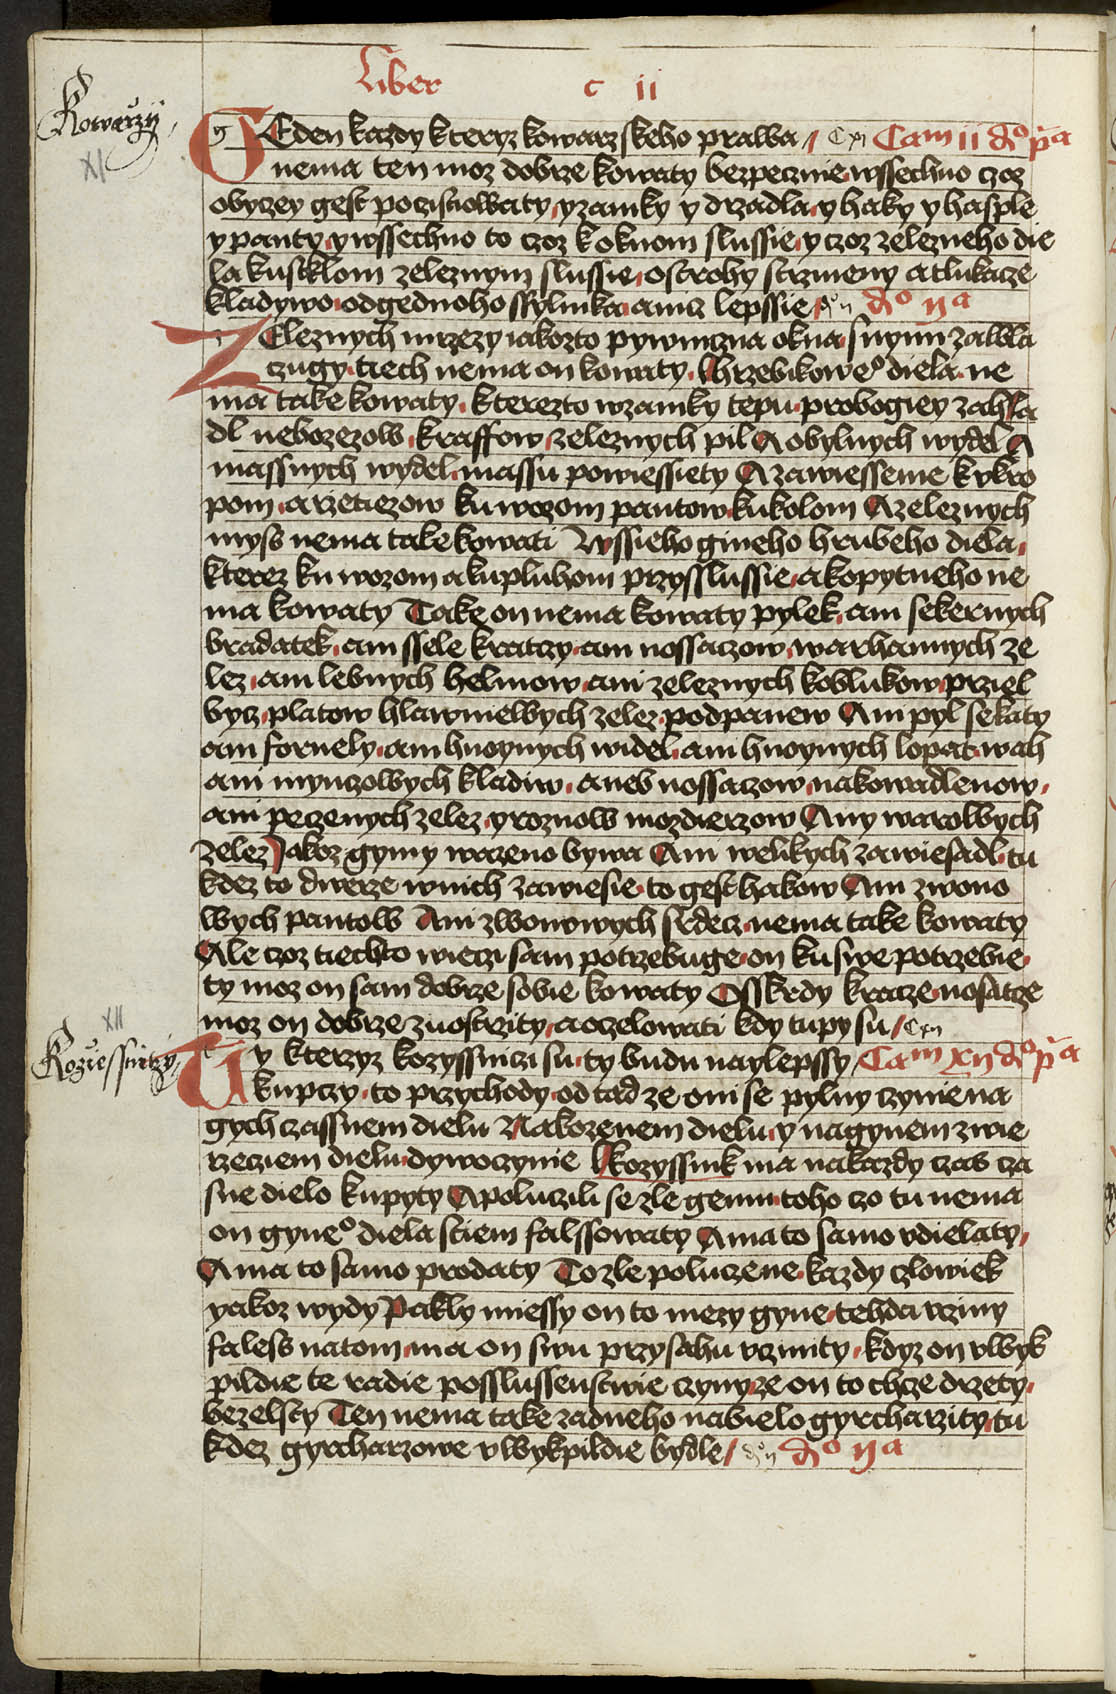 Liber c ii
Kowarzij
XI
GEden kazdy kteryz kowarzskeho prawa / Cxi Cam ii do pa
nema ten moz dobrze kowaty bezpecznie wssechno czoz
obyczey gest pozistiowaty, y zamky y drzadla, y haky y hasple
y panty, y wssechno to czoz k oknom slussie, y czoz zelezneho die
la ku stklom zeleznym slussie, ostrohy strzmeny a tlukacze
kladywo, od gednoho ssylinka, a nicz lepssie / do ii do iia
ZEleznych mrzezy iakozto pywniczna okna, s nymi zawla
czugy, tiech nema on kowaty. Hrzebikoweo diela ne
ma take kowaty, kterezto w zamky tepu, probogiey zahla
dl nebozezow, kraffow, zeleznych pil A obylnych wydel A
massnych wydel, massu powiessiety A zawiessenie k ykro
pom, a rzetiezow ku wozom pantow, ku kolom A zeleznych
mys nema take kowati Wssieho gineho hrubeho diela,
kterez ku wozom a ku pluhom przysslussie, a kopytneho ne
ma kowaty Take on nema kowaty pylek, ani sekernych
bradatek, ani ssele kratzy, ani nossaczow, warhannych ze
lez, ani lebnych helmow, ani zeleznych koblukow, prziel
bycz, platow hlawniewych zelez, podpanew Ani pyl sekaty
ani fornely, ani hnoynych widel, ani hnoynych lopat, wah
ani mynczowych kladiw, aneb nossaczow, nakowadlenow,
ani peczenych zelez, y roznow mozdierzow Any warolwych
zelez Jakoz gymy warzeno bywa Ani welikych zawiesadl, tu
kdez to dwerze w nich zawiesie, to gest hakow Ani zwono
wych pantow Ani zwonowych srdecz, nema take kowaty
Ale czoz tiechto wieczi sam potrzebuge, on ku swe potrzebie,
ty moz on sam dobrze sobie kowaty Osskrdy kracze, nosatcze
moz on dobrze znostrzity, a oczelowati kdy tupy su / Cxii
XII
Koziessniczy
Ty kterzyz kozyssniczi su, ty budu naylepssy / Cam xii do pa
kupczy, to przychody, od tad ze oni se pylny czynie na
gych czassnem dielu Na kozenem dielu, y na gynem zwie
rzeciem dielu, dywoczynie Kozyssink ma na kazdy czas cza
sne dielo kupyty A poluczili se zle gemu, toho czo tu nema
on gyneo diela s tiem falssowaty A ma to samo vdielaty,
A ma to samo prodaty To zle poluczene, kazdy czlowiek
yakoz wydy Pakly miessy on to mezy gyne, tehda vziny
faless na tom, ma on swu przysahu vczinity, kdyz on v wyk
pildie te radie posslussenstwie czyny, ze on to chcze drzety,
bez elsty Ten nema take zadneho na bielo gyrcharzity, tu
kdez gyrcharzowe v wykpildie bydle / do ii do iia